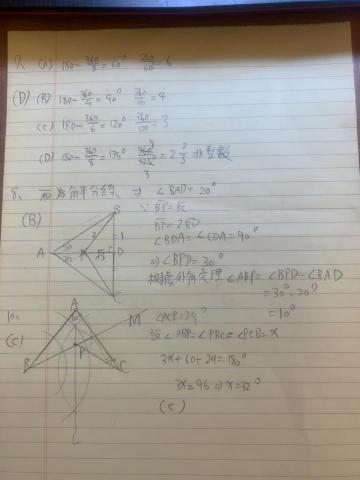 7. (A) 180-360/3=60° 360/60=6
(D) (B) 180-360/4=90° 360/90=4
(C) 180-360/6=120° 360/120=3
(D) 180-360/8=135° 360/135=2 2/3 非整數
8. AD為角平分線 ⇒ ∠BAD=20°
(B) ∵ BP=BC
BP=2BD
∠BDA=∠CDA=90°
⇒∠BPD=30°
根據外角定理 ∠ABP=∠BPD-∠BAD
=30°-20°
=10°
B
2
1
A
20
20
P
√3
D
C
10.
(C)
A
M
B
P
C
L
∠ACP=24°
設∠ABP=∠PBC=∠PCB=x
3x+60+24=180°
3x=96 ⇒ x=32°
(C)